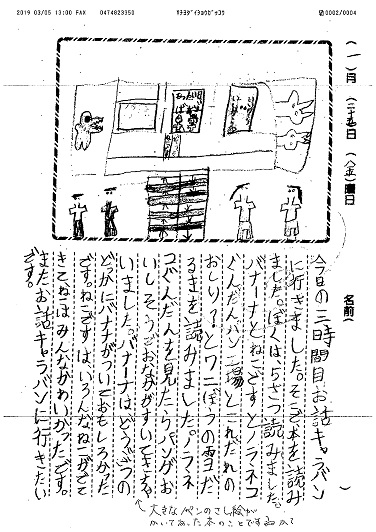 2019 03/05 13:00 FAX 0474823353 ﾔﾁﾖﾀﾞｲｼｮｳｶﾞｯｺｳ 0002/0004
(一)月(二十五)日(金)曜日
名前( )
今日の三時間目お話キャラバン
に行きました。そこで本を読み
ました。ぼくは、5さつ読みました。
バナーナとねこざすとノラネコ
ぐんだんパン工場とこれだれの
おしり?とワニぼうの雪だ
るまを読みました。ノラネ
コぐんだんを見たらパンがお
いしそうでおなかがすいてきちゃ
いました。バナーナはどうぶつの
どっかにバナナがついておもしろかった
です。ねこざすは、いろんなねこがでて
きてねこはみんなかわいかったです。
またお話キャラバンに行きたい
です。
大きなペンのさし絵が
かいてあった本のことですね